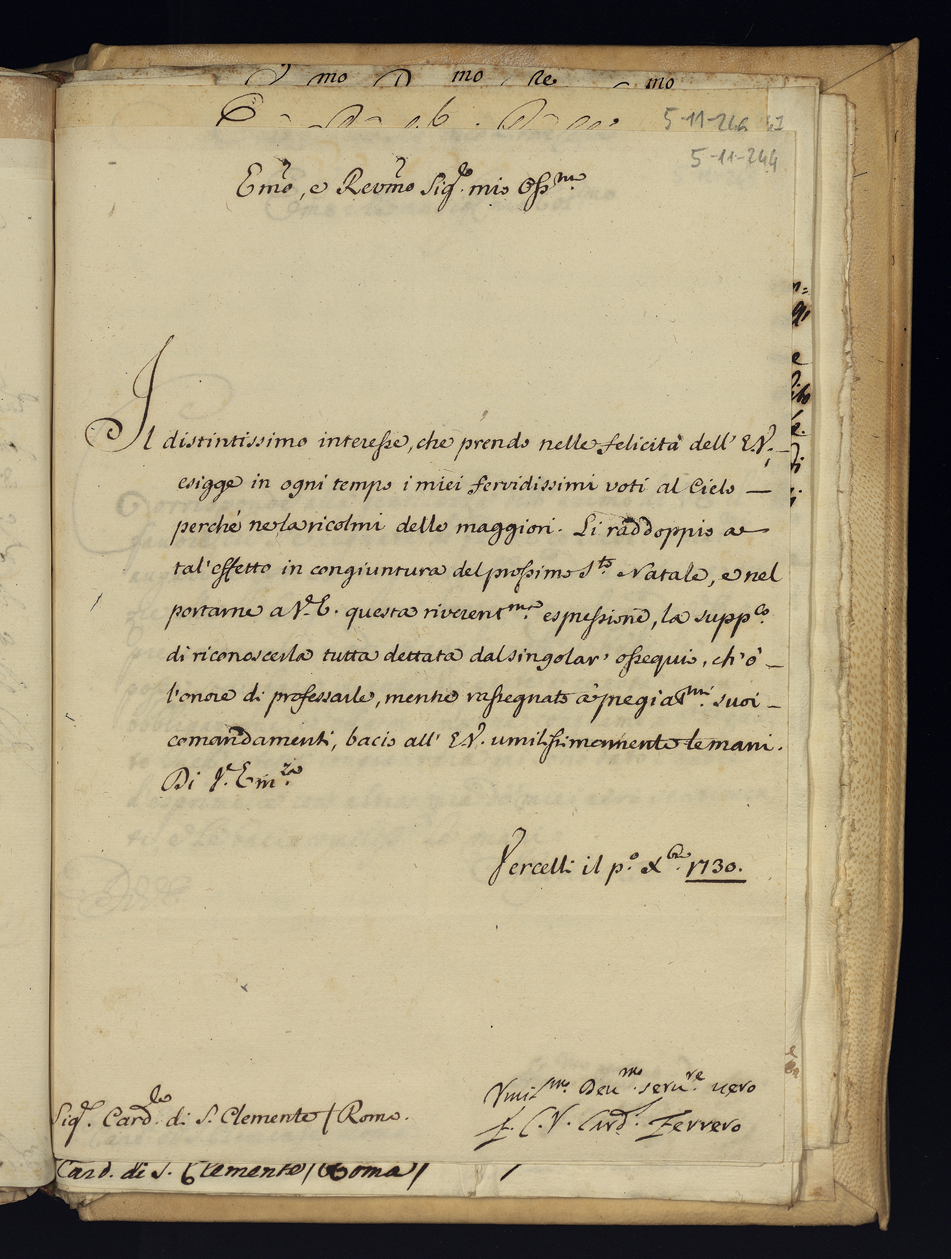 mo mo Re mo
5-11-246
5-11-244
Emo, e Revmo Sigre. mio Ossmo.
Il distintissimo interesse, che prendo nelle felicità dell' E.V.,
esigge in ogni tempo i miei fervidissimi voti al Cielo —
perché ne la ricolmi delle maggiori. Li raddoppio a
tal' effetto in congiuntura del prossimo Sto Natale, e nel
portarne a V.E. questa riverentma. espressione, la suppco.
di riconoscerla tutta dettata dal singolar' ossequio, ch' ò —
l'onore di professarle, mentre rassegnato a' pregiatmi. suoi —
comandamenti, bacio all' E.V. umilissimamente le mani.
Di V. Emza.
Vercelli il po. Xbre 1730.
Umilmo. Devmo. servre vero
f. C. V. Card. Ferrero
Sigr. Cardle. di S. Clemente / Roma.
Card. di S. Clemente / Roma /